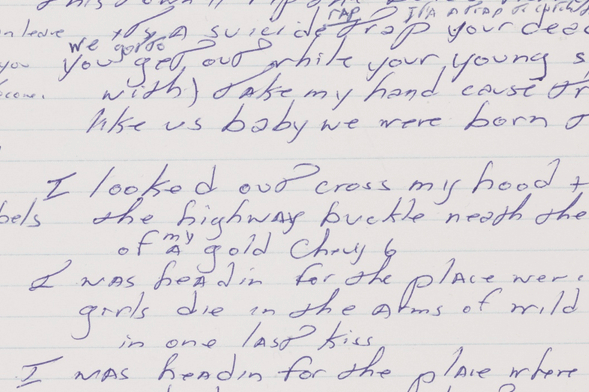 it's A suicide rap trap your dead
we gotta
you get out while your young
with) take my hand cause
like us baby we were born
I looked out cross my hood
the highway buckle neath the
of my A gold Chevy 6
I was headin for the place
girls die in the arms of wild
in one last kiss
I was headin for the place where